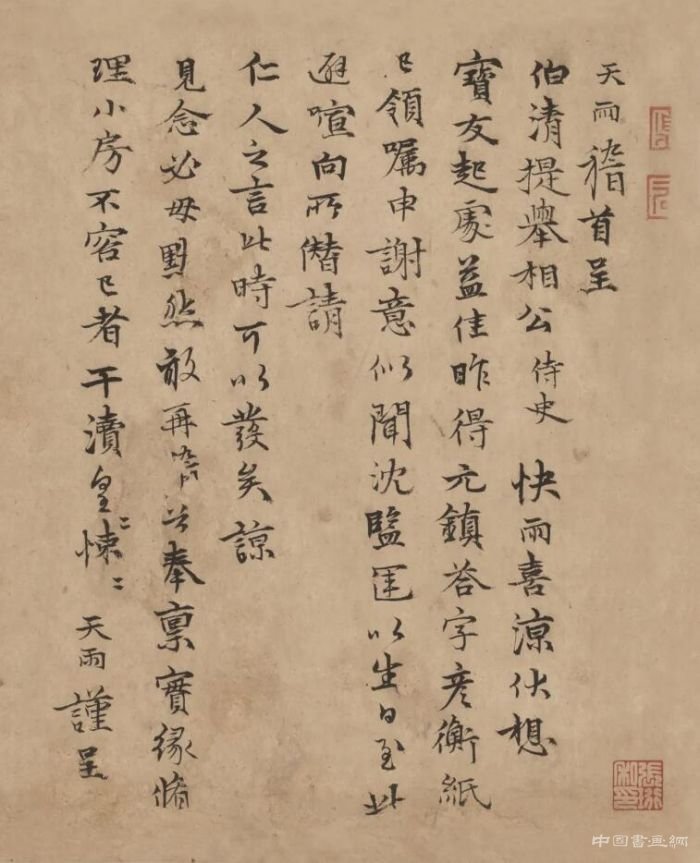 天雨稽首呈
伯清提舉相公侍史 快雨喜涼伏想
寶友起處益佳昨得元鎮荅字彥衡紙
已領囑申謝意似聞沈監運以生日至此
避喧向所僭請
仁人之言此時可以發矣諒
見念必毋默然敢再嗜首奉稟實緣脩
理小房不容已者干瀆皇〻悚〻
天雨謹呈
中国書画網